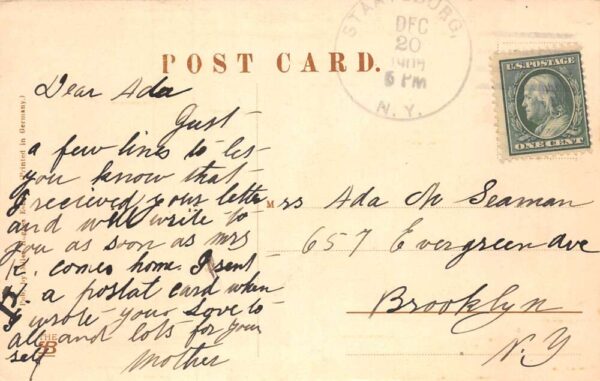 POST CARD.
STAATSBURG,
DEC
20
1909
6 PM
N. Y.
U.S. POSTAGE
ONE CENT
Dear Ada
Just
a few lines to let
you know that
I recieved your letter
and will write to
you as soon as mrs
comes home. I sent
a postal card when
I wrote your love to
all and lots for your
self
Mother
Mrs Ada M Seaman
657 Evergreen Ave
Brooklyn
N. Y
Printed in Germany.)
THE